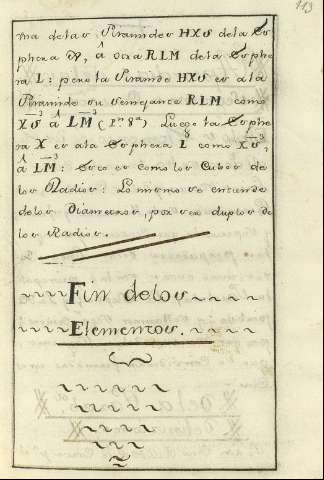 113
na delas Piramides HXS dela Es
phera X, â otra RLM dela Esphe
ra L: pero la Piramide HXS es ala
Piramide su semejante RLM como
XS³ â LM³ (1ª 8ª) Luego la Esphe
ra X es ala Esphera L como XS³,
â LM³: Esto es como los Cubos de
los Radios: Lo mismo se entiende
delos Diametros, por ser duplos de
los Radios.
Fin delos
Elementos.